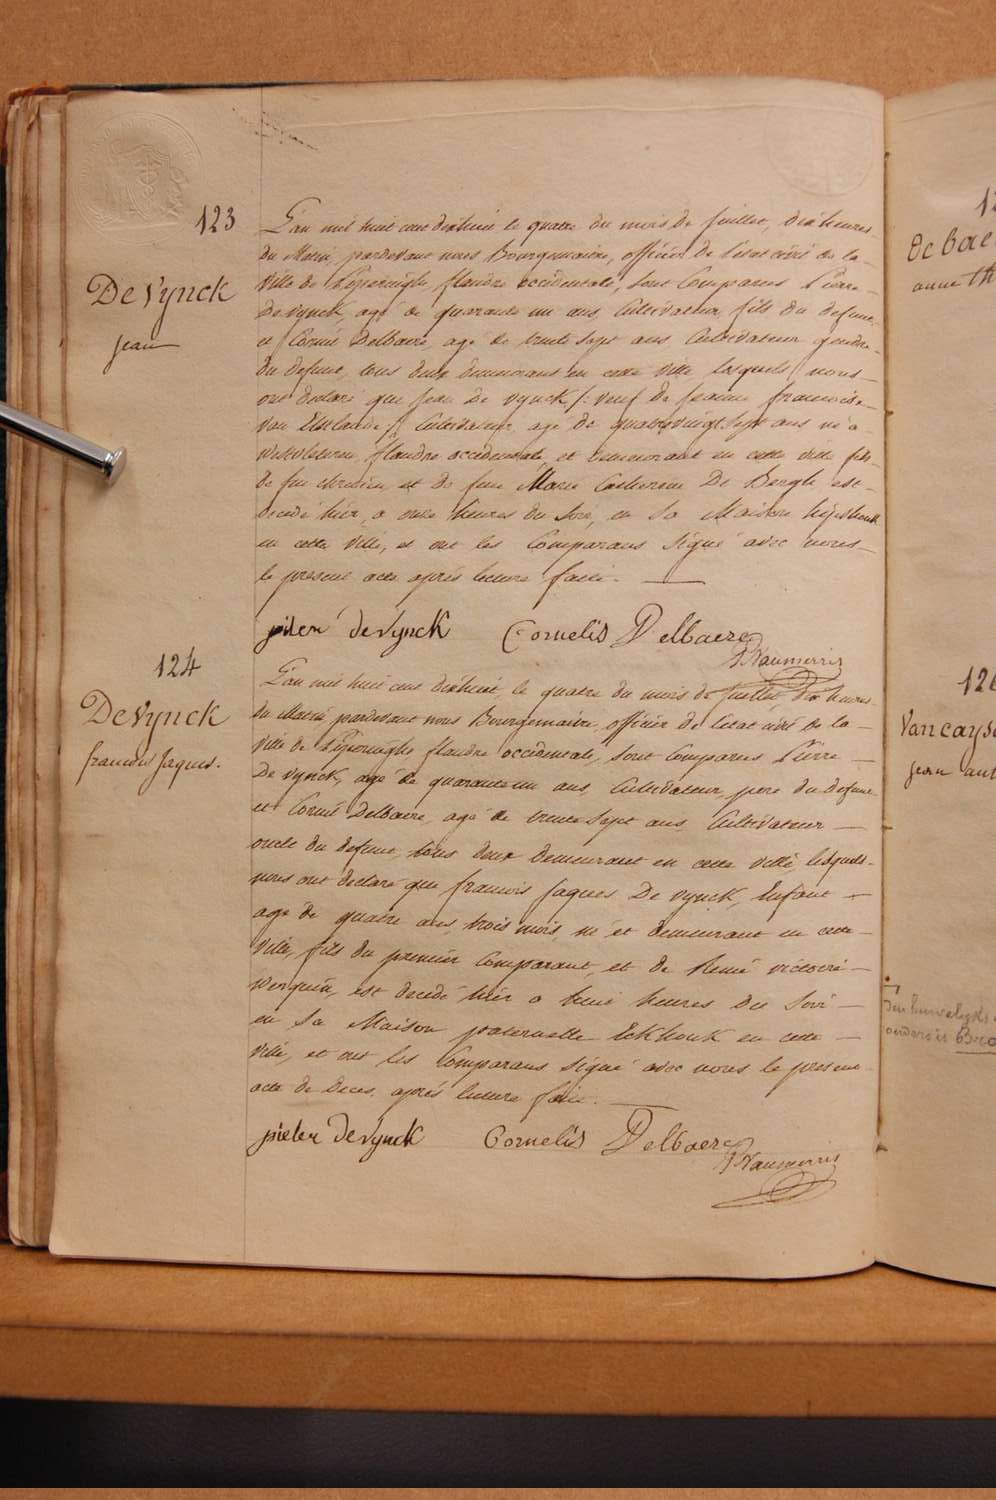 123
De Vynck
jean
L'an mil huit cent dixhuit le quatre du mois de juillet, dix heures
du Matin, pardevant nous Bourguemaitre, officier de l'etat civil de la
ville de flandre occidentale, sont Comparus Pierre
Devynck, agé de quarante un ans, Cultivateur, fils du defunt,
et Corneil Delbaere, agé de trente sept ans Cultivateur gendre
du defunt, tous deux demeurans en cette ville, lesquels nous
ont declaré que jean de vynck /: veuf de francoise
van Elslande :/ Cultivateur, agé de quatrevingt sept ans né a
westvleteren, flandre occidentale, et demeurant en cette ville fils
de feu et de feue Marie Catherine De Bergh est
decedé hier, a onze heures du soir, en sa Maison
en cette ville, et ont les Comparans signé avec nous
le present acte après lecture faite.
pieter deVynck Cornelis Delbaere
124
DeVynck
francois jaques.
L'an mil huit cent dixhuit, le quatre du mois de juillet, dix heures
du Matin pardevant nous Bourguemaitre, officier de l'etat civil de la
ville de flandre occidentale, sont Comparus Pierre
De vynck, agé de quarante un ans, Cultivateur, pere du defunt
et Corneil Delbaere, agé de trente sept ans, Cultivateur
oncle du defunt, tous deux demeurant en cette ville, lesquels
nous ont declaré que francois jaques De vynck, Enfant
agé de quatre ans, trois mois, né et demeurant en cette
ville, fils du premier Comparant, et de victoire
est decedé hier a huit heures du soir
en sa Maison paternelle Eekhouk en cette
ville, et ont les Comparans signé avec nous le present
acte de deces, après lecture faite.
pieter deVynck Cornelis Delbaere
de bae
anne th
Van cayse
jean ant